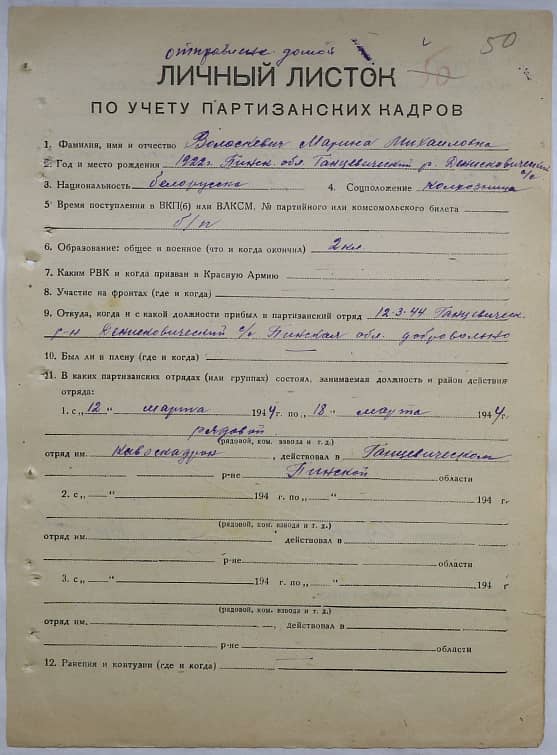 отправлена домой
50
ЛИЧНЫЙ ЛИСТОК
ПО УЧЕТУ ПАРТИЗАНСКИХ КАДРОВ
1. Фамилия, имя и отчество Волоскевич Марина Михайловна
2. Год и место рождения 1922 г. Пинск. обл. Ганцевический р. Денисковический с/с
3. Национальность белорусска 4. Соцположение колхозница
5 Время поступления в ВКП(б) или ВЛКСМ, № партийного или комсомольского билета
б/п
6. Образование: общее и военное (что и когда окончил) 2 кл
7. Каким РВК и когда призван в Красную Армию
8. Участие на фронтах (где и когда)
9. Откуда, когда и с какой должности прибыл в партизанский отряд 12-3-44 Ганцевическ.
р-н Денисковический с/с Пинская обл. добровольно
10. Был ли в плену (где и когда)
11. В каких партизанских отрядах (или группах) состоял, занимаемая должность и район действия
отряда:
1. с „12“ марта 1944 г. по „18“ марта 1944 г.
рядовой
(рядовой, ком. взвода и т. д.)
отряд им. кавэскадрон, действовал в Ганцевическом
р-не Пинской области
2. с „ “ 194 г. по „ “ 194 г.
(рядовой, ком. взвода и т. д.)
отряд им. действовал в
р-не области
3. с „ “ 194 г. по „ “ 194 г.
(рядовой, ком. взвода и т. д.)
отряд им. , действовал в
р-не области
12. Ранения и контузии (где и когда)